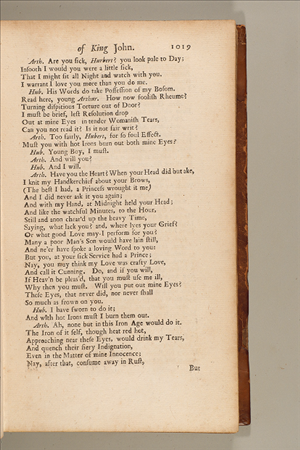 of King John. 1019
Arth. Are you sick, Hubert? you look pale to Day;
Insooth I would you were a little sick,
That I might sit all Night and watch with you.
I warrant I love you more than you do me.
Hub. His Words do take Possession of my Bosom.
Read here, young Arthur. How now foolish Rheume?
Turning dispitious Torture out of Door?
I must be brief, lest Resolution drop
Out at mine Eyes in tender Womanish Tears,
Can you not read it? Is it not fair writ?
Arth. Too fairly, Hubert, for so foul Effect.
Must you with hot Irons burn out both mine Eyes?
Hub. Young Boy, I must.
Arth. And will you?
Hub. And I will.
Arth. Have you the Heart? When your Head did but ake,
I knit my Handkerchief about your Brows,
(The best I had, a Princess wrought it me)
And I did never ask it you again;
And with my Hand, at Midnight held your Head;
And like the watchful Minutes, to the Hour,
Still and anon chear'd up the heavy Time,
Saying, what lack you? and, where lyes your Grief?
Or what good Love may I perform for you?
Many a poor Man's Son would have lain still,
And ne'er have spoke a loving Word to you:
But you, at your sick Service had a Prince;
Nay, you may think my Love was crafty Love,
And call it Cunning. Do, and if you will,
If Heav'n be pleas'd, that you must use me ill,
Why then you must. Will you put out mine Eyes?
These Eyes, that never did, nor never shall
So much as frown on you.
Hub. I have sworn to do it;
And with hot Irons must I burn them out.
Arth. Ah, none but in this Iron Age would do it.
The Iron of it self, though heat red hot,
Approaching near these Eyes, would drink my Tears,
And quench their fiery Indignation,
Even in the Matter of mine Innocence;
Nay, after that, consume away in Rust,
But